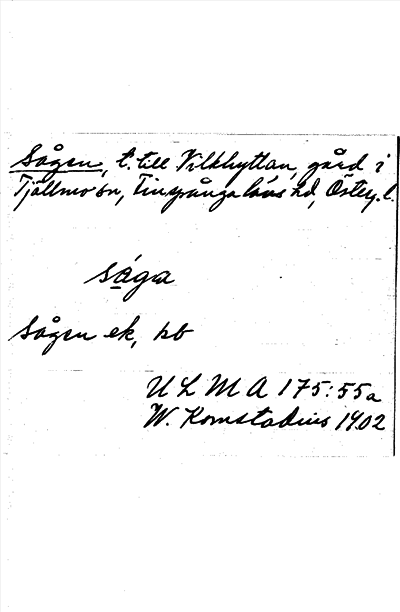 Sågen, t. till Vilkhyttan, gård i
Tjällmo sn, Finspånga läns hd, Österg. l.
sága
Sågen ek, kb
U L M A 175:55a
W. Komstadius 1902